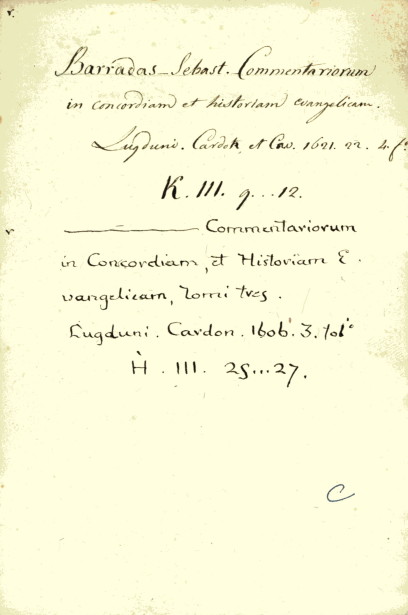 Barradas_Sebast. Commentariorum
in concordiam et historiam evangelicam.
Lugduni. Cardon et Cav. 1621. 22. 4. f.º
K. III. 9...12.
———— Commentariorum
in Concordiam, et Historiam E.
vangelicam, Tomi tres.
Lugduni. Cardon. 1606. 3. folº
H. III. 25...27.
C